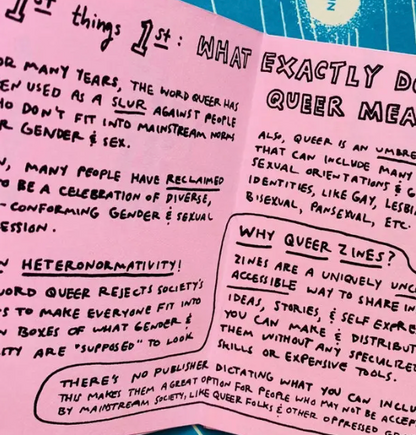 1st things 1st: WHAT EXACTLY
QUEER
FOR MANY YEARS, THE WORD QUEER HAS
USED AS A SLUR AGAINST PEOPLE
WHO DON'T FIT INTO MAINSTREAM NORMS
GENDER & SEX.
MANY PEOPLE HAVE RECLAIMED
TO BE A CELEBRATION OF DIVERSE,
-CONFORMING GENDER & SEXUAL
HETERONORMATIVITY!
WORD QUEER REJECTS SOCIETY'S
TO MAKE EVERYONE FIT INTO
BOXES OF WHAT GENDER &
ARE "SUPPOSED" TO LOOK
ALSO, QUEER IS AN
THAT CAN INCLUDE MANY
SEXUAL ORIENTATIONS &
IDENTITIES, LIKE GAY,
BISEXUAL, PANSEXUAL, ETC.
WHY QUEER ZINES?
ZINES ARE A UNIQUELY
ACCESSIBLE WAY TO SHARE
IDEAS, STORIES, & SELF
YOU CAN MAKE &
THEM WITHOUT ANY
SKILLS OR EXPENSIVE TOOLS.
THERE'S NO PUBLISHER DICTATING WHAT YOU CAN
THIS MAKES THEM A GREAT OPTION FOR PEOPLE WHO MAY NOT BE
BY MAINSTREAM SOCIETY, LIKE QUEER FOLKS & OTHER OPPRESSED